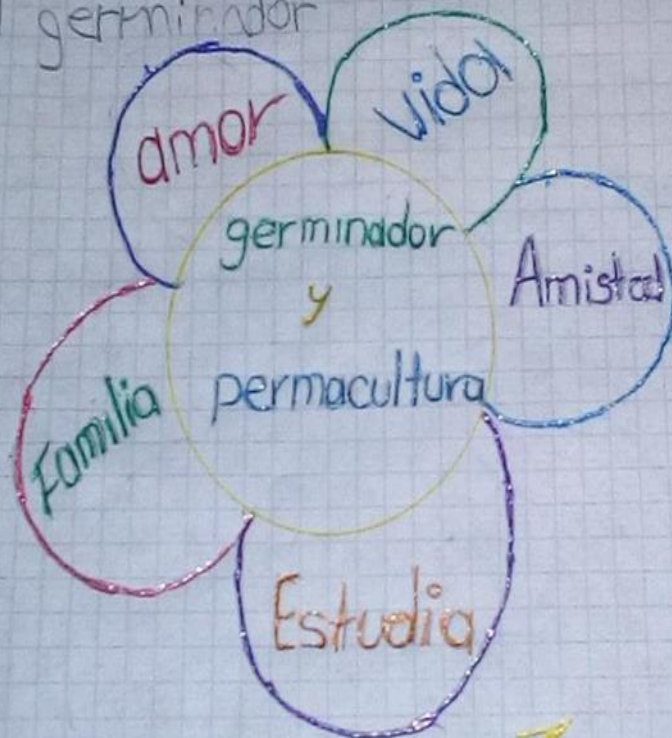 germinador
amor
vida
germinador
y
permacultura
Amistad
Familia
Estudia